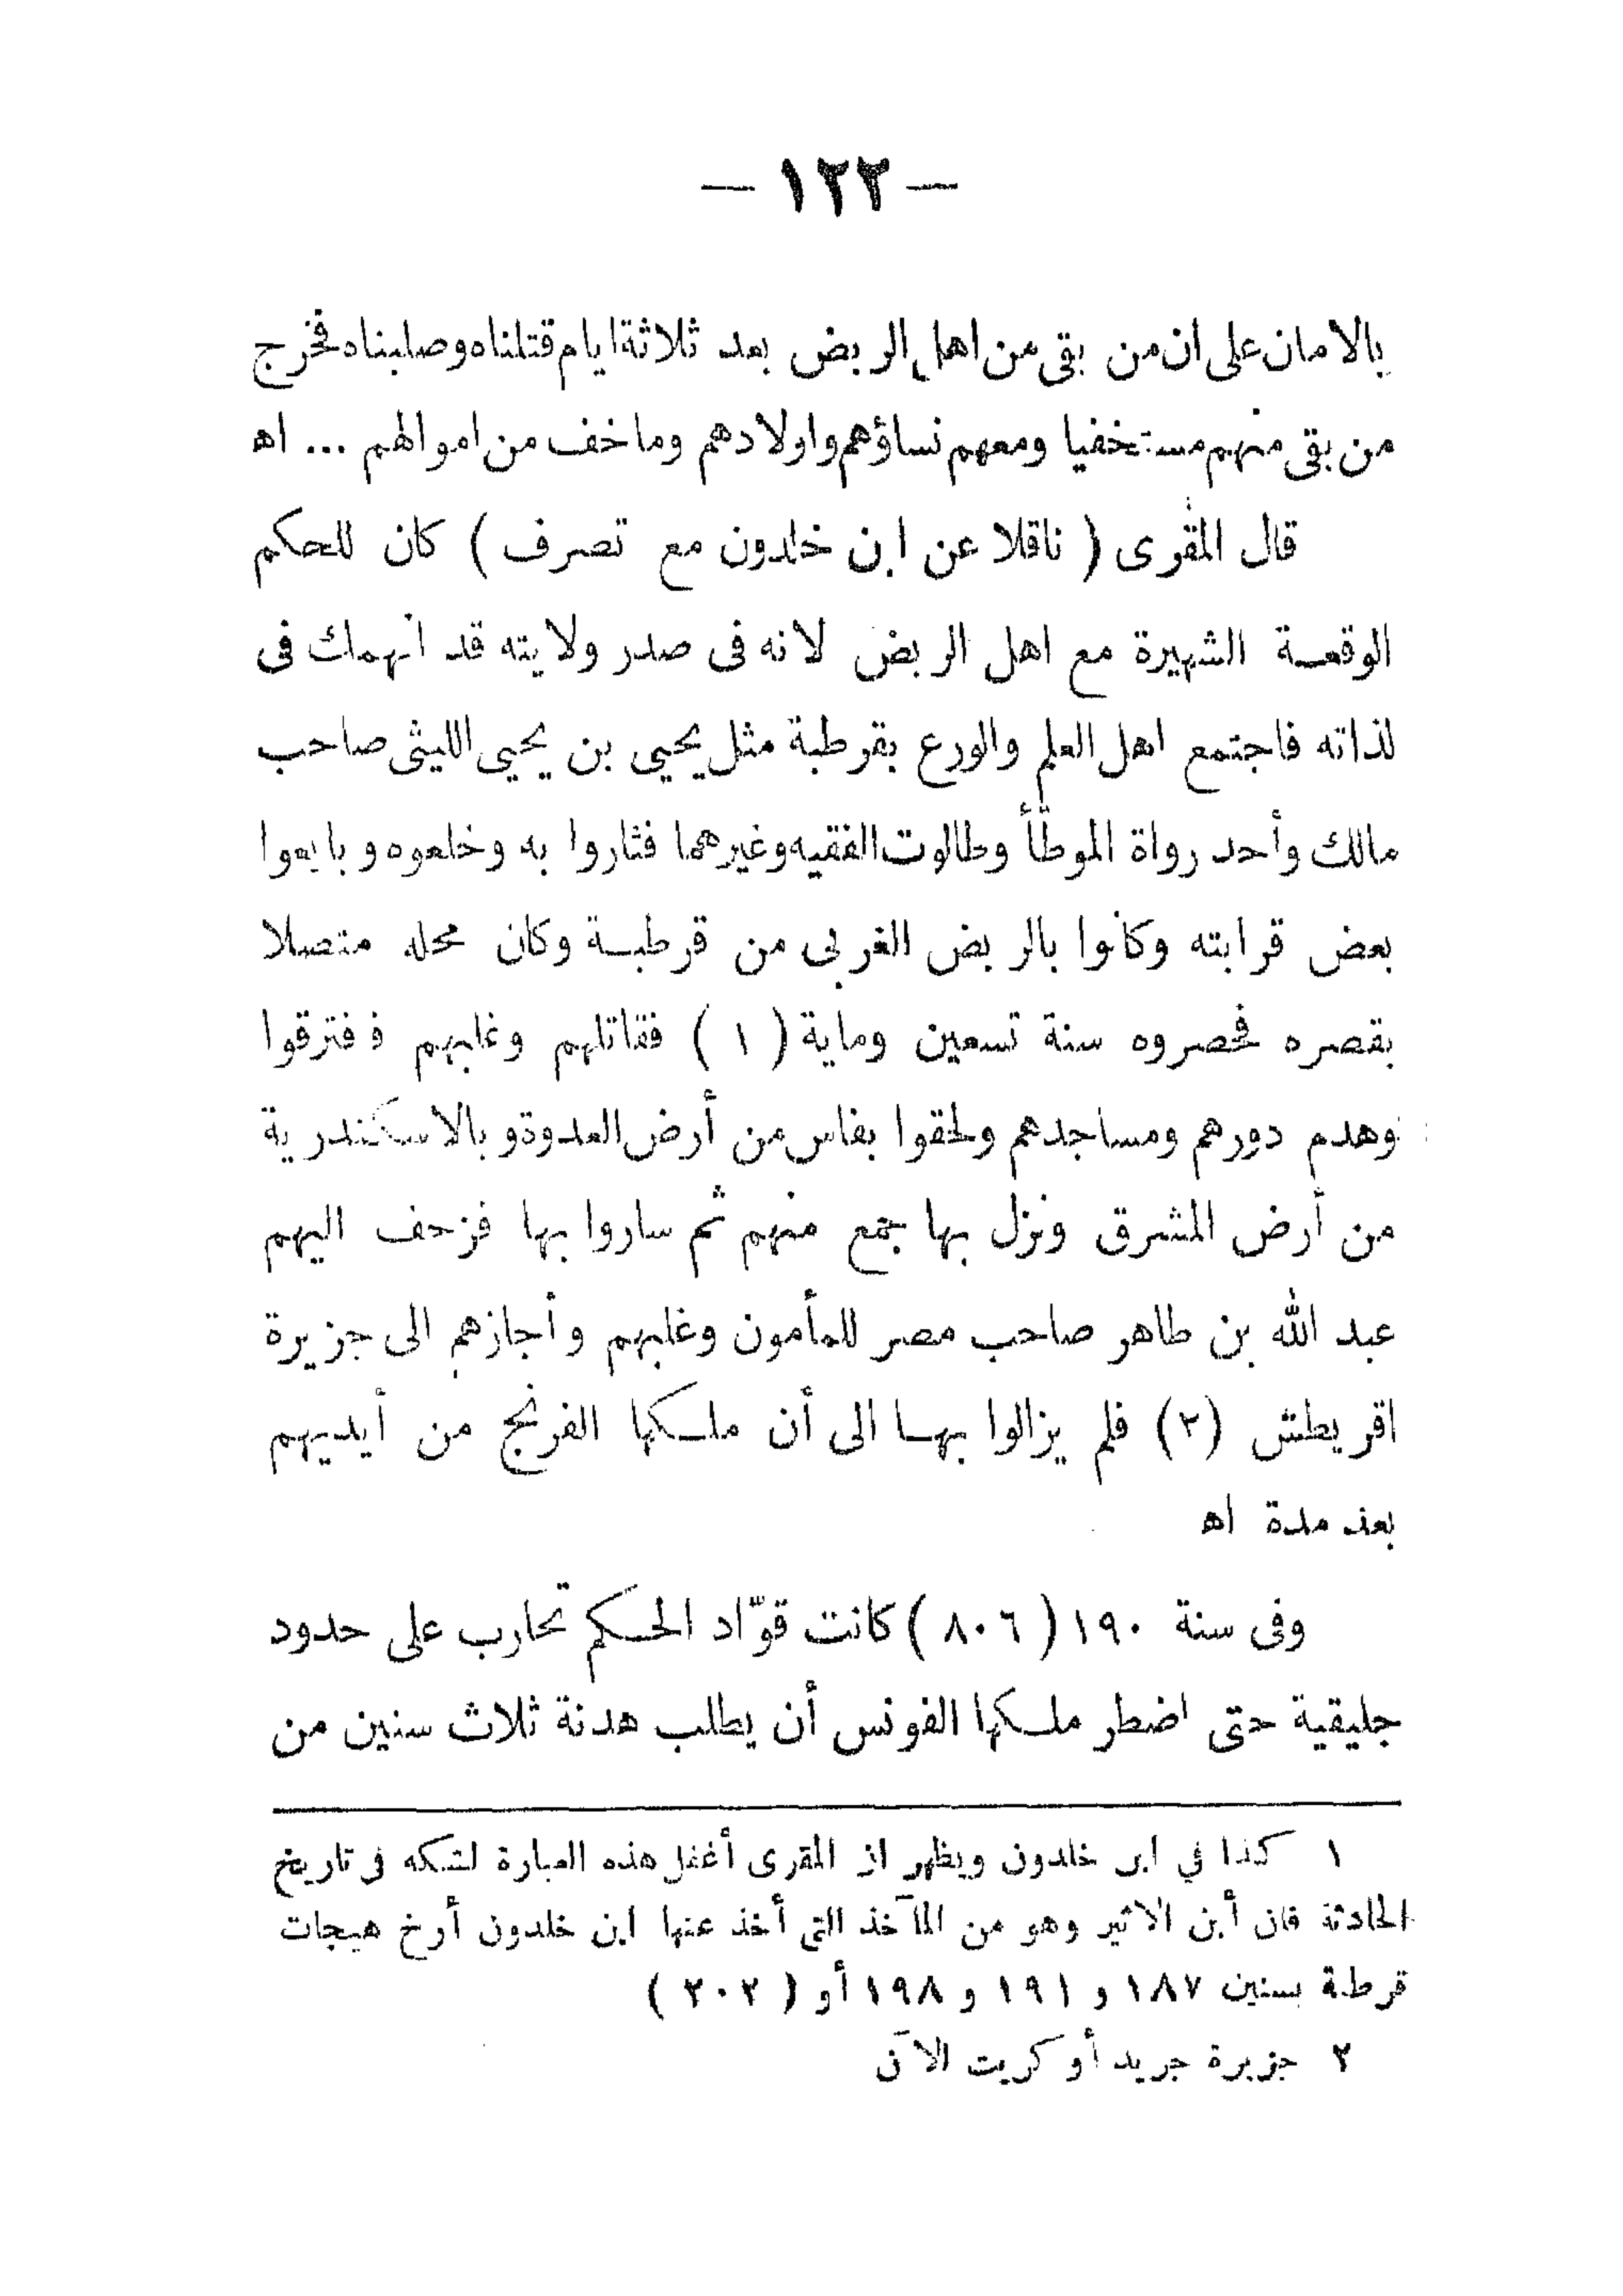 — ١٢٢ —
بالامان على ان من بقى من اهل الربض بعد ثلاثة ايام قتلناه وصلبناه فخرج
من بقى منهم مستخفيا ومعهم نساؤهم واولادهم وما خف من اموالهم ... اه
قال المقرى ( ناقلا عن ابن خلدون مع تصرف ) كان للحكم
الوقعة الشهيرة مع اهل الربض لانه فى صدر ولايته قد انهمك فى
لذاته فاجتمع اهل العلم والورع بقرطبة مثل يحيى بن يحيى الليثى صاحب
مالك وأحد رواة الموطّأ وطالوت الفقيه وغيرهما فثاروا به وخلعوه وبايعوا
بعض قرابته وكانوا بالربض الغربى من قرطبة وكان محله متصلا
بقصره فحصروه سنة تسعين وماية ( ١ ) فقاتلهم وغلبهم ففترقوا
وهدم دورهم ومساجدهم ولحقوا بفاس من أرض العدوة وبالاسكندرية
من أرض المشرق ونزل بها جمع منهم ثم ساروا بها فزحف اليهم
عبد الله بن طاهر صاحب مصر للمأمون وغلبهم وأجازهم الى جزيرة
اقريطش (٢) فلم يزالوا بها الى أن ملكها الفرنج من أيديهم
بعد مدة اه
وفى سنة ١٩٠ ( ٨٠٦ ) كانت قوّاد الحكم تحارب على حدود
جليقية حتى اضطر ملكها الفونس أن يطلب هدنة ثلاث سنين من
١ كذا في ابن خلدون ويظهر ان المقرى أغفل هذه العبارة لشكه فى تاريخ
الحادثة فان أبن الاثير وهو من المآخذ التى أخذ عنها ابن خلدون أرخ هيجات
قرطبة بسنين ١٨٧ و ١٩١ و ١٩٨ أو ( ٢٠٢ )
٢ جزيرة جريد أو كريت الآن